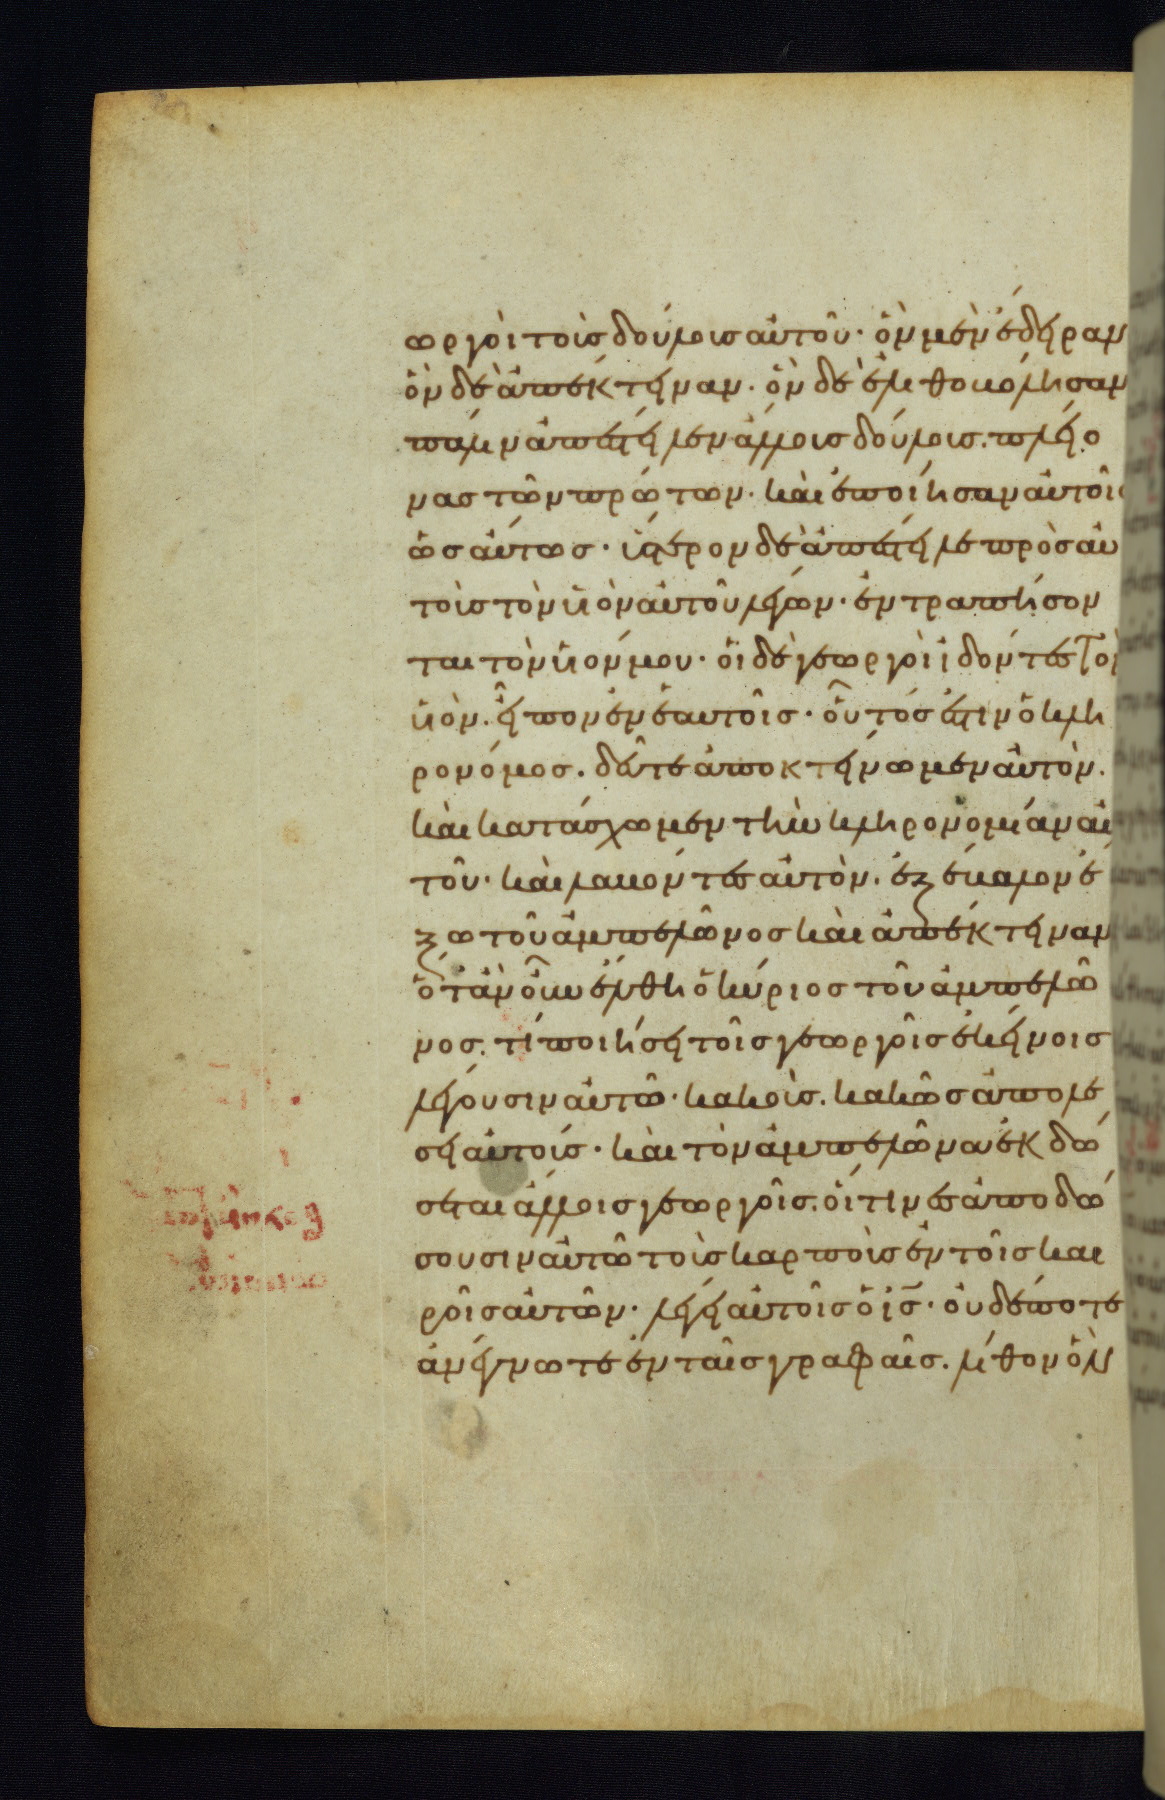 ωργοὶ τοὺς δούλους αὐτοῦ· ὃν μὲν ἔδειραν
ὃν δὲ ἀπέκτειναν. ὃν δὲ ἐλιθοβόλησαν
πάλιν ἀπέστειλεν ἄλλους δούλους. πλείο
νας τῶν πρώτων. καὶ ἐποίησαν αὐτοῖς
ὡσαύτως· ὕστερον δὲ ἀπέστειλε πρὸς αὐ
τοὺς τὸν υἱὸν αὐτοῦ λέγων. ἐντραπήσον
ται τὸν υἱόν μου· οἱ δὲ γεωργοὶ ἰδόντες τὸν
υἱὸν. εἶπον ἐν ἑαυτοῖς· οὗτός ἐστιν ὁ κλη
ρονόμος. δεῦτε ἀποκτείνωμεν αὐτὸν.
καὶ κατάσχωμεν τὴν κληρονομίαν αὐ
τοῦ· καὶ λαβόντες αὐτὸν. ἐξέβαλον ἔ
ξω τοῦ ἀμπελῶνος καὶ ἀπέκτειναν
ὅταν οὖν ἔλθη ὁ κύριος τοῦ ἀμπελῶ
νος. τί ποιήσει τοῖς γεωργοῖς ἐκείνοις
λέγουσιν αὐτῶ· κακοὺς. κακῶς ἀπολέ
σει αὐτούς· καὶ τὸν ἀμπελῶνα ἐκδώ
σεται ἄλλοις γεωργοῖς. οἵτινες ἀποδώ
σουσιν αὐτῶ τοὺς καρποὺς ἐν τοῖς και
ροῖς αὐτῶν. λέγει αὐτοῖς ὁ ις̄· οὐδέποτε
ἀνέγνωτε ἐν ταῖς γραφαῖς. λίθον ὃν